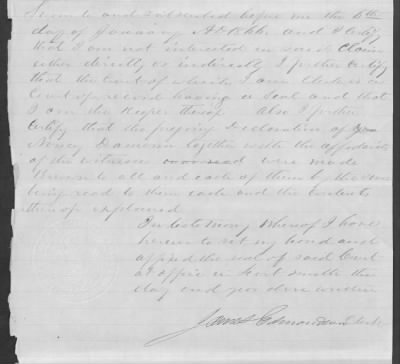 Sworn to and subscribed before me the 6th
day of January AD 1882 and I certify
that I am not interested in said Claim
either directly or indirectly I further certify
that the Court of which I am Clerk is a
Court of record having a Seal and that
I am the Keeper thereof Also I further
certify that the foregoing Declaration of
Nancy together with the affidavits
of the witnesses were made
Known to all and each of them by the same
being read to them each and the contents
thereof explained
In testimony Whereof I have
hereunto set my hand and
affixed the seal of said Court
at office in Fort Smith the
day and year above written
James Edmondson Clerk